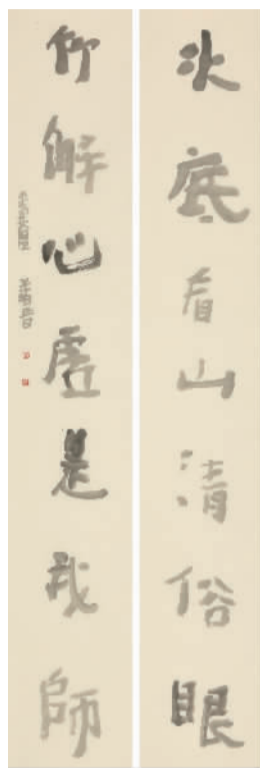 水底看山清俗眼
竹解心虛是我師